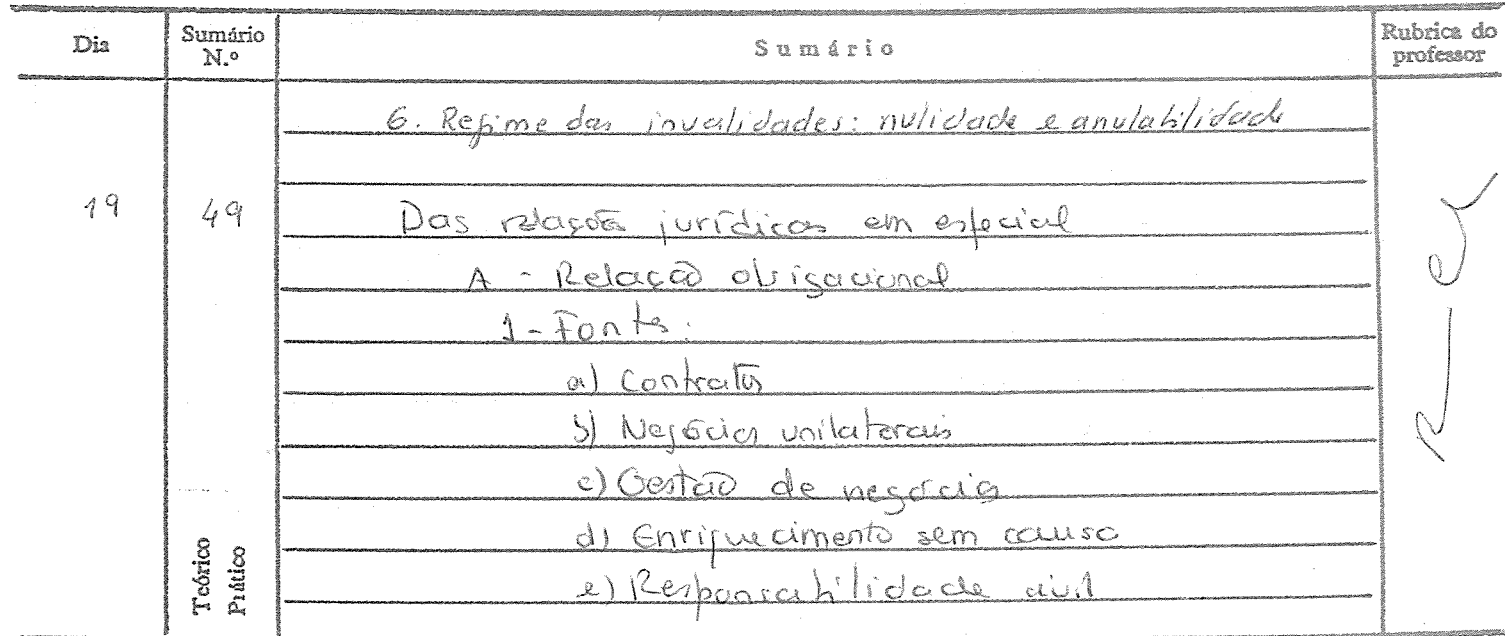 Dia Sumário N.º Sumário Rubrica do professor
6. Regime das invalidades: nulidade e anulabilidade
19 49 Das relações jurídicas em especial
A - Relação obrigacional
1 - Fontes:
a) Contratos
b) Negócios unilaterais
c) Gestão de negócios
d) Enriquecimento sem causa
e) Responsabilidade civil
Teórico
Prático